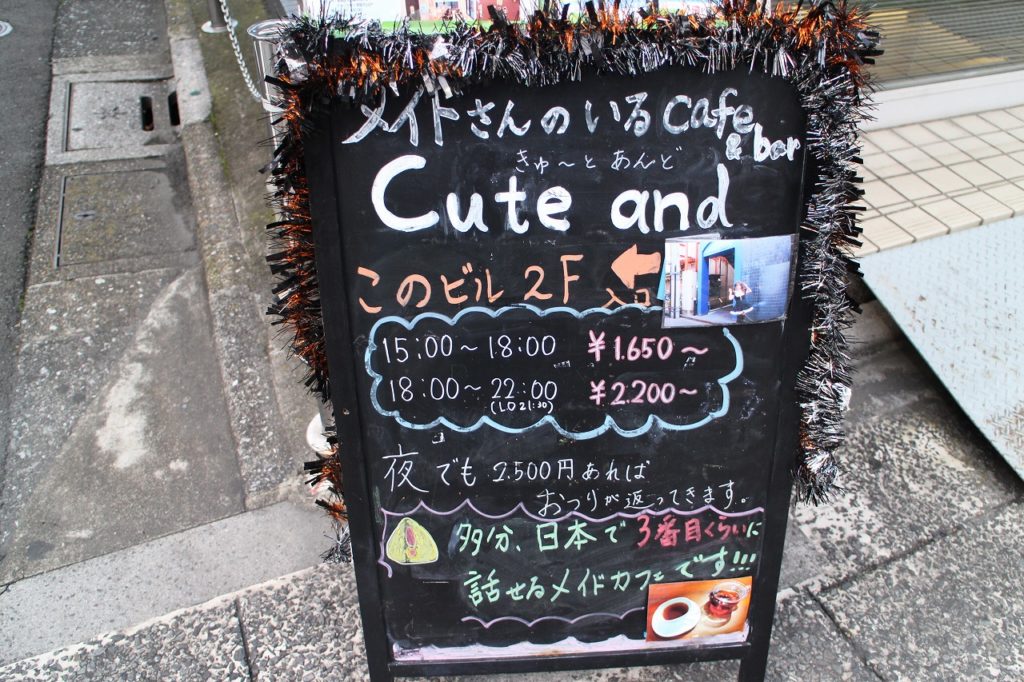 メイドさんのいるcafe
& bar
きゅ〜と あんど
Cute and
このビル 2F
入口
15:00〜18:00 ¥1.650〜
18:00〜22:00 ¥2.200〜
(LO 21:30)
夜でも 2.500円あれば
おつりが返ってきます。
多分、日本で3番目くらいに
話せるメイドカフェです!!!